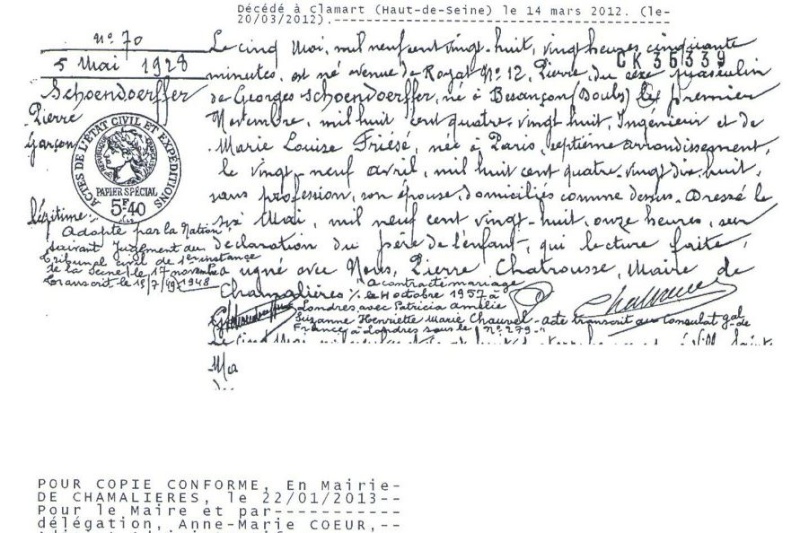 Décédé à Clamart (Haut-de-Seine) le 14 mars 2012. (le-
20/03/2012).
n° 70
5 Mai 1928
Schoendoerffer
Pierre
Garçon
ACTES DE L'ÉTAT CIVIL ET EXPÉDITIONS
PAPIER SPÉCIAL
5F.40
Légitime
Adopté par la Nation
suivant jugement du
tribunal civil de 1ere instance
de la Seine, le 17 novembre
transcrit le 19/7/49 1948
CK 35339
Le cinq Mai, mil neuf cent vingt-huit, vingt heures cinquante
minutes, est né avenue de Royat N° 12, Pierre, du sexe masculin
de Georges Schoendoerffer, né à Besançon (Doubs) le premier
Novembre, mil huit cent quatre-vingt-huit, Ingénieur et de
Marie Louise Friésé, née à Paris, septième arrondissement,
le vingt-neuf avril, mil huit cent quatre vingt dix huit,
sans profession, son épouse, domiciliés comme dessus. Dressé le
six Mai, mil neuf cent vingt-huit, onze heures, sur
déclaration du père de l'enfant, qui lecture faite,
a signé avec Nous, Pierre Chatrousse, Maire de
Chamalières
A contracté mariage
le 11 octobre 1957 à
Londres avec Patricia Amélie
Suzanne Henriette Marie Chauvel - acte transcrit au Consulat gal de
France à Londres sous le n° 279
Le cinq Mai, mil neuf cent
Ma
POUR COPIE CONFORME, En Mairie-
DE CHAMALIERES, le 22/01/2013--
Pour le Maire et par-----------
délégation, Anne-Marie COEUR,--